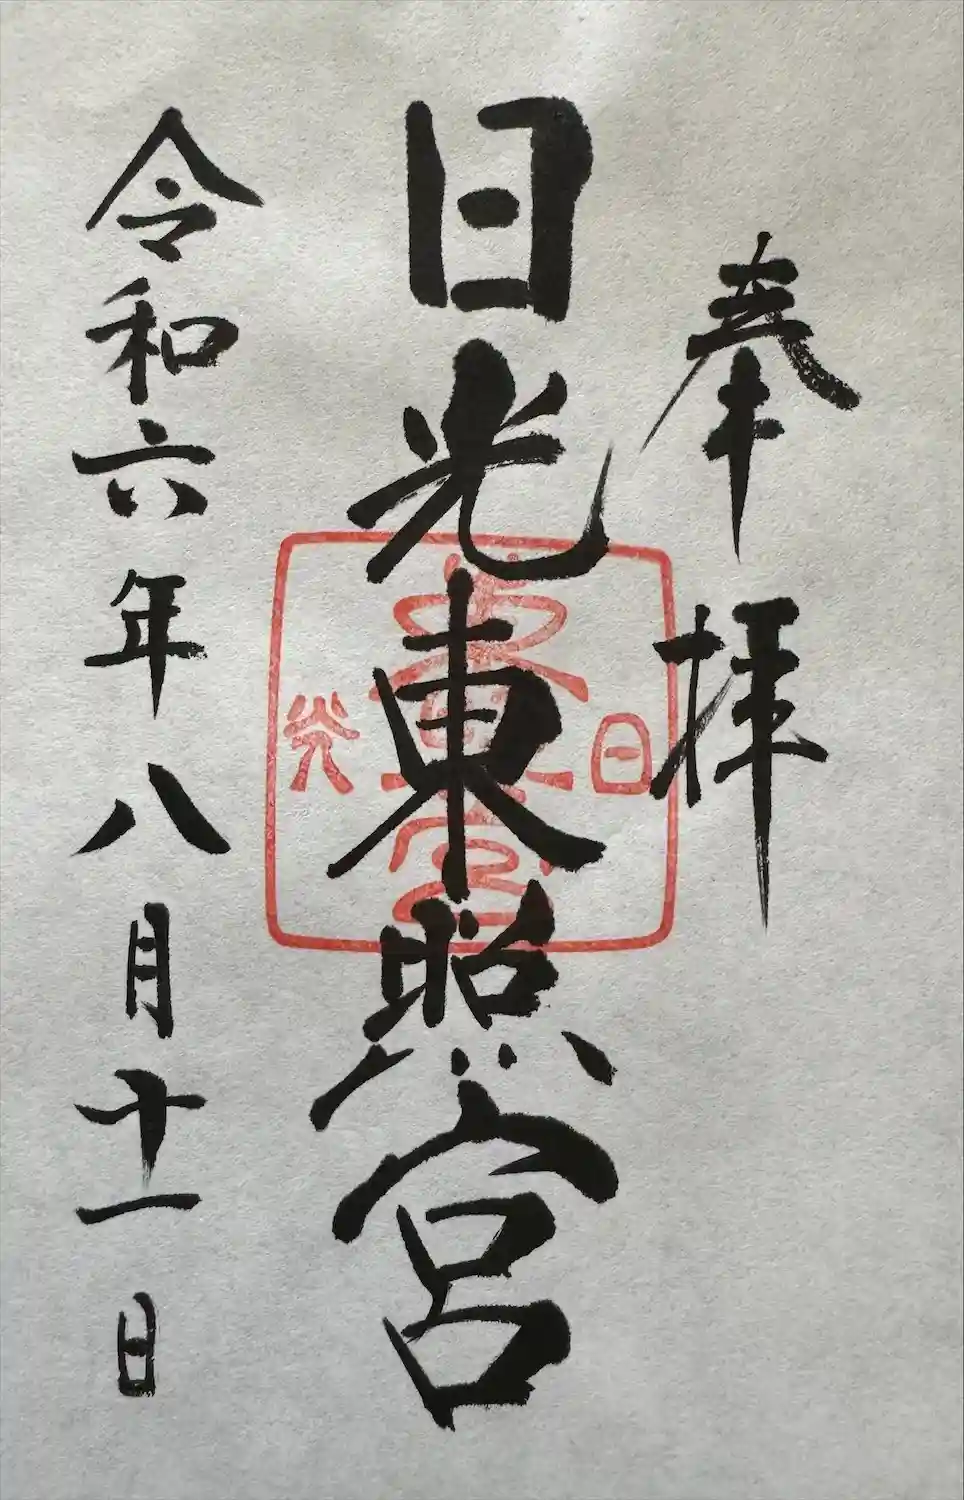 奉拝
日光東照宮
令和六年八月十一日
日
光
東
宮